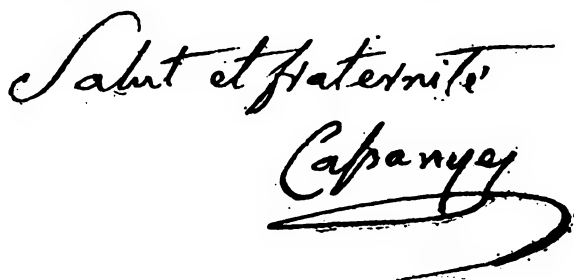 Salut et fraternité
Capanyes